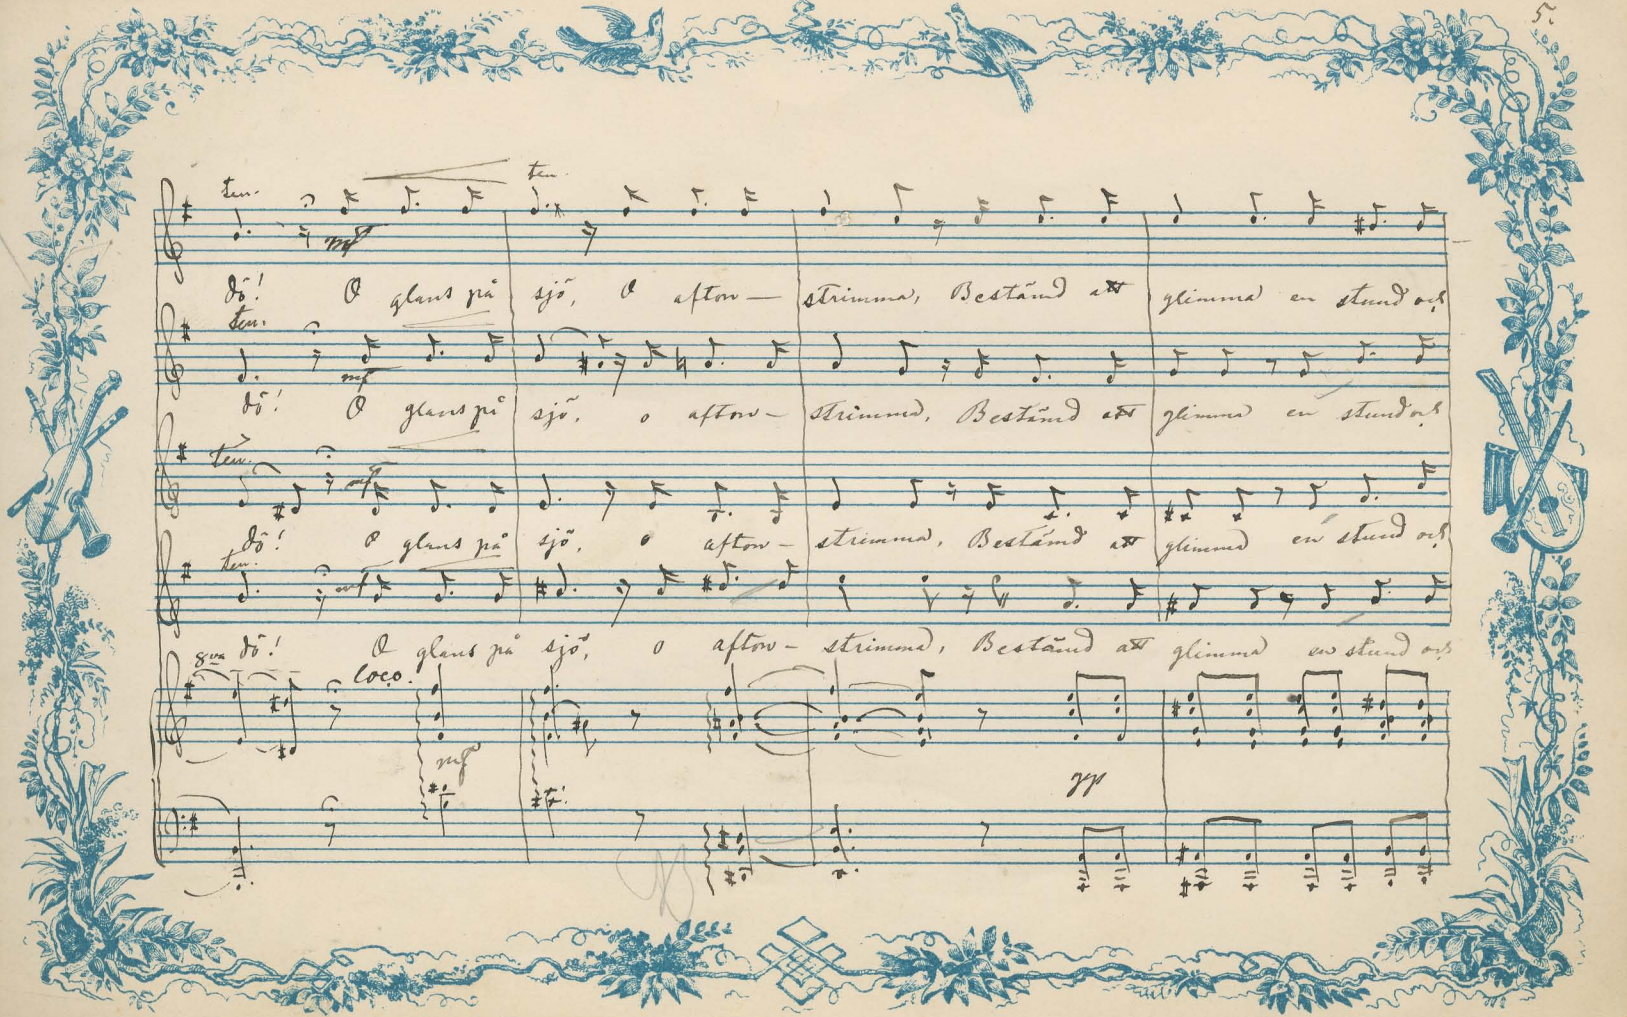 5.
ten. ten.
mf
dö! O glans på sjö, O afton— strimma, Bestånd att glimma en stund och
ten.
mf
dö! O glans på sjö, o afton— strimma, Bestånd att glimma en stund och
ten.
mf
dö! O glans på sjö, o afton— strimma, Bestånd att glimma en stund och
ten.
mf
dö! O glans på sjö, o afton— strimma, Bestånd att glimma en stund och
8va loco.
mf
pp